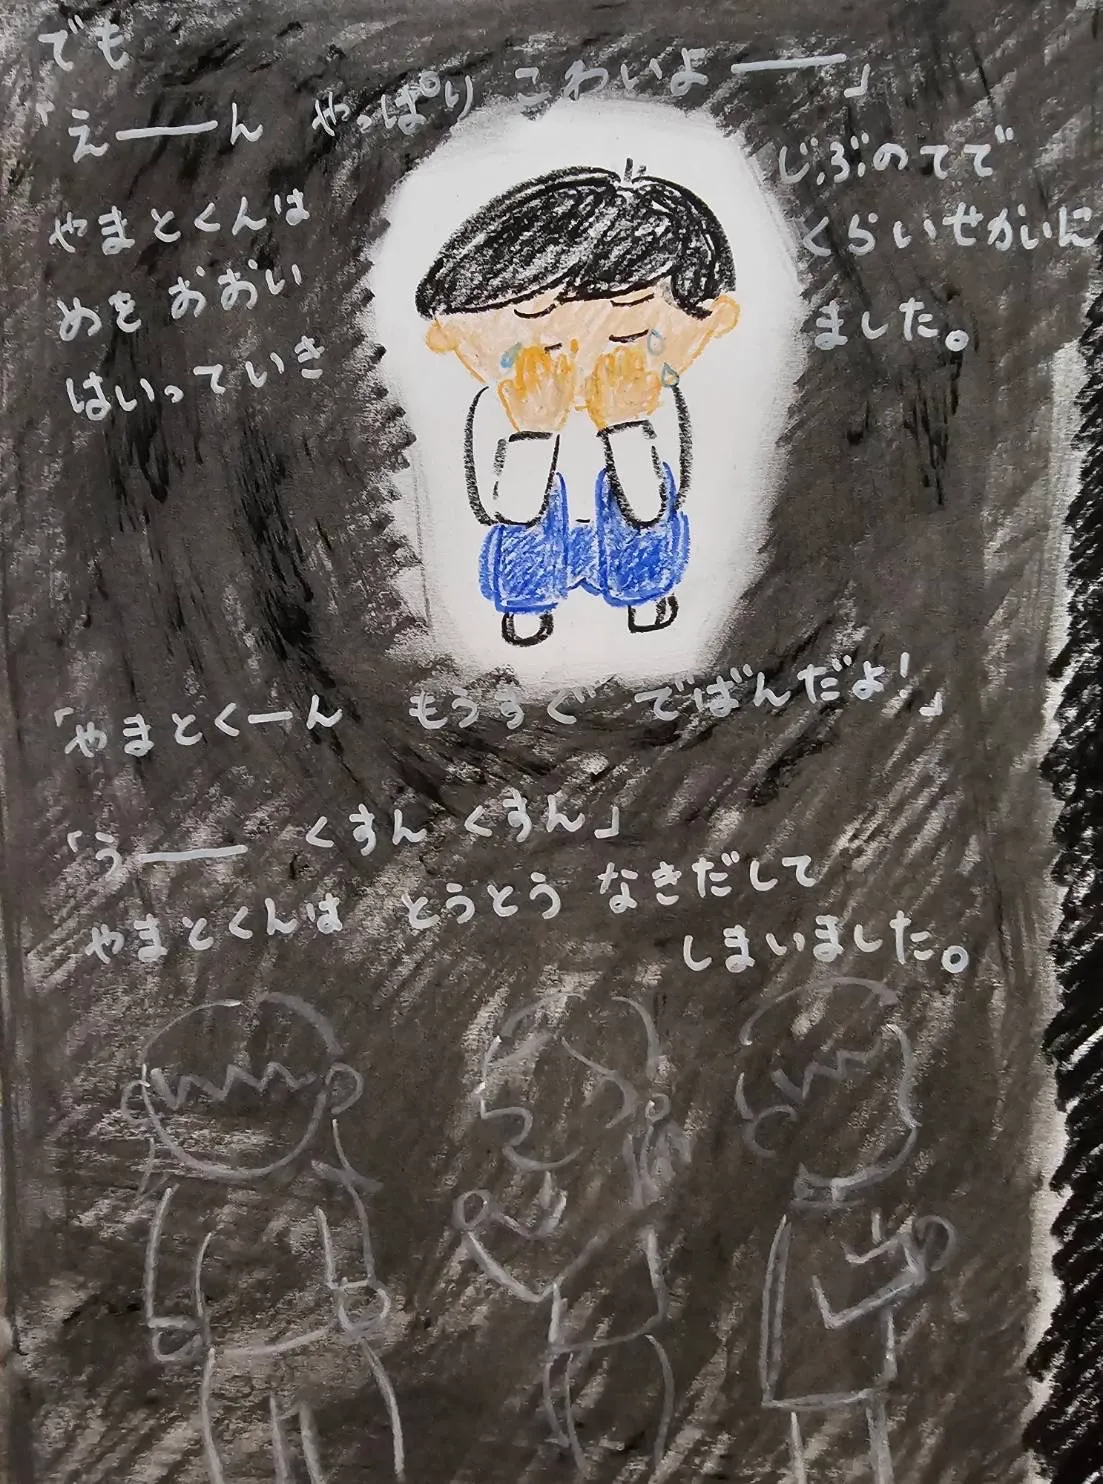 でも
「えーん やっぱり こわいよー」
やまとくんは じぶのてで
めを おおい くらいせかいに
はいっていき ました。
「やまとくーん もうすぐ でばんだよ!」
「うー くすん くすん」
やまとくんは とうとう なきだして
しまいました。